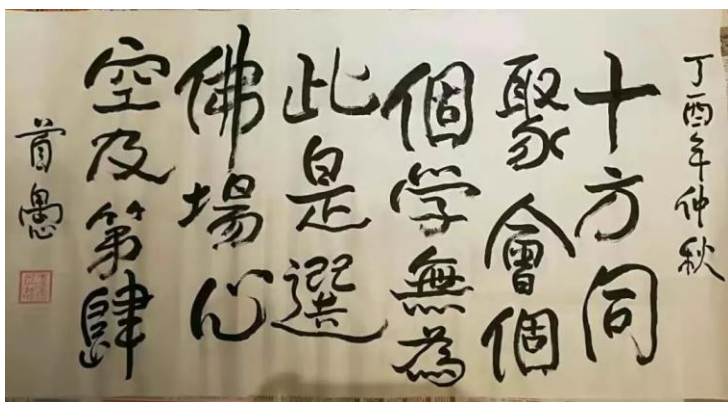 丁酉年仲秋
十方同
聚會個
個學無為
此是選
佛場心
空及第肆
首愚